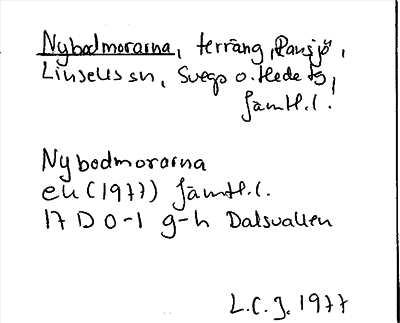 Nybodmorarna, terräng, Ransjö,
Linsells sn, Svegs o. Hede ts,
Jämtl. l.
Nybodmorarna
ek (1977) Jämtl. l.
17 D 0-1 g-h Dalsvallen
L.C.J. 1977